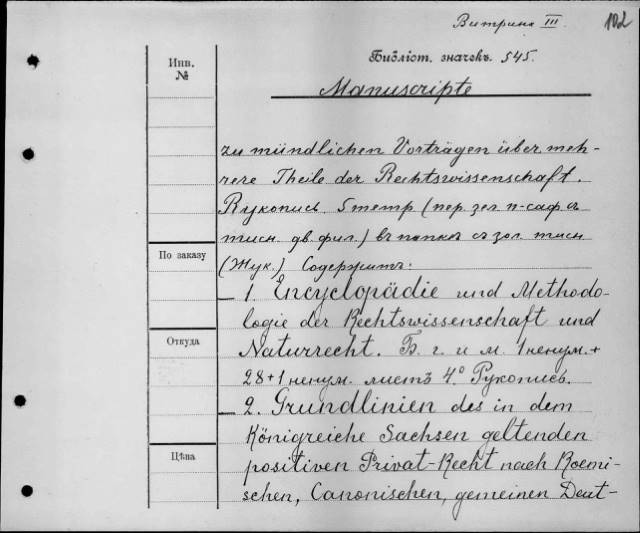 Витрина III. 102
Инв.
№
Библіот. значекъ 545.
Manuscripte
zu mündlichen Vorträgen über meh-
rere Theile der Rechtswissenschaft.
Рукопись. 5 тетр (пер. зел. п-саф съ
тисн. дв. фил.) въ папкѣ съ зол. тисн
По заказу
(Жук.) Содержитъ:
1. Encyclopädie und Methodo-
logie der Rechtswissenschaft und
Откуда
Naturrecht. Б. г. и м. 1 ненум. +
28+1 ненум. листъ 4º Рукопись.
2. Grundlinien des in dem
Königreiche Sachsen geltenden
Цѣна
positiven Privat-Recht nach Roemi-
schen, Canonischen, gemeinen Deut-